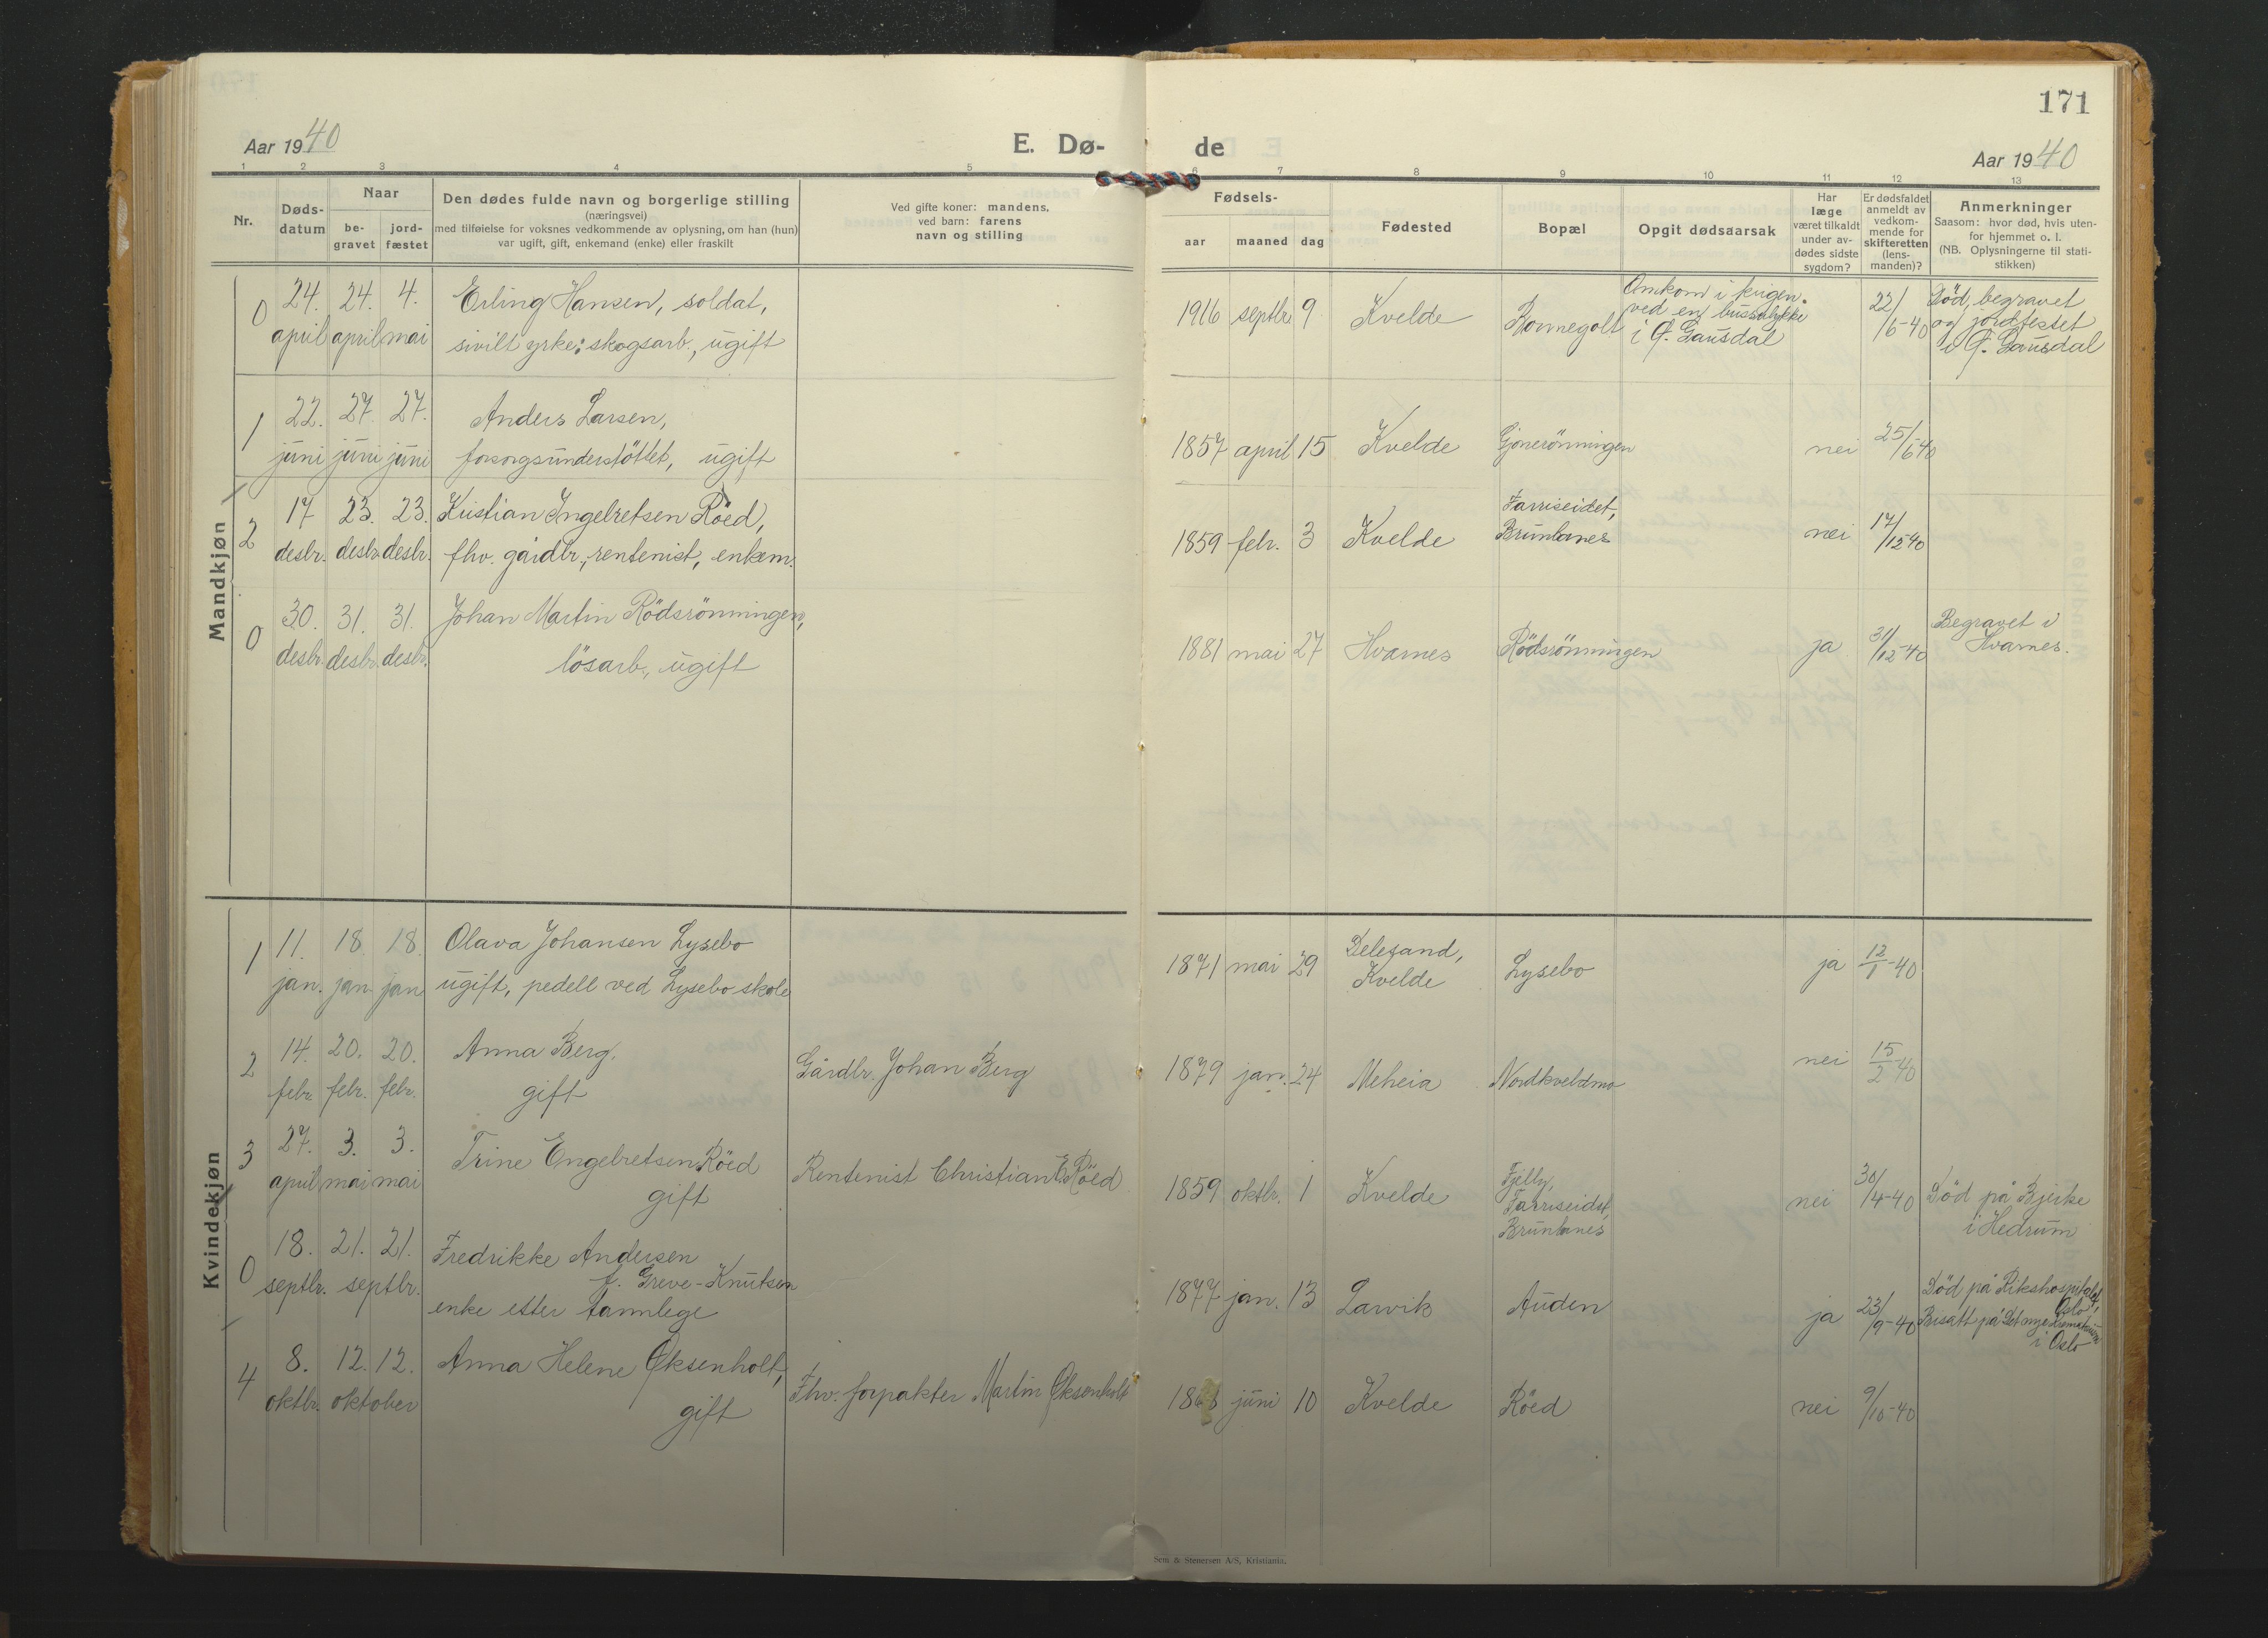 171
Aar 1940
E. Dø-
de
Aar 1940
1 2 3 4 5 6 7 8 9 10 11 12 13
Nr.
Døds-
datum
Naar
be-
gravet
jord-
fæstet
Den dødes fulde navn og borgerlige stilling
(næringsvei)
med tilføielse for voksnes vedkommende av oplysning, om han (hun)
var ugift, gift, enkemand (enke) eller fraskilt
Ved gifte koner: mandens,
ved barn: farens
navn og stilling
Fødsels-
aar maaned dag
Fødested
Bopæl
Opgit dødsaarsak
Har
læge
været tilkaldt
under av-
dødes sidste
sygdom?
Er dødsfaldet
anmeldt av
vedkom-
mende for
skifteretten
(lens-
manden)?
Anmerkninger
Saasom: hvor død, hvis uten-
for hjemmet o. l.
(NB. Oplysningerne til stati-
stikken)
Mandkjøn
0 24. april 24. april 4. mai
Erling Hansen, soldat,
sivilt yrke: skogsarb., ugift
1916 septbr 9 Kvelde
Omkom i krigen
ved en bussulykke
i Ø. Gausdal
22/6-40
Död, begravet
og jordfestet
i Ø. Gausdal
1 22. juni 27. juni 27. juni
Anders Larsen,
forsorgsunderstöttet, ugift
1857 april 15 Kvelde Gjonerönningen nei 25/6-40
2 17 desbr. 23. desbr. 23. desbr.
Kristian Ingelretsen Röed,
fhv. gårdbr., rentenist, enkem.
1859 febr. 3 Kvelde
Farriseidet,
Brunlanes
nei 17/12-40
0 30. desbr. 31. desbr. 31. desbr.
Johan Martin Rödsrönningen,
lösarb., ugift
1881 mai 27 Hvarnes Rödsrönningen ja 31/12-40
Begravet i
Hvarnes.
Kvindekjøn
1 11. jan. 18. jan. 18. jan.
Olava Johansen Lysebo
ugift, pedell ved Lysebo skole
1871 mai 29
Delesand,
Kvelde
Lysebo ja 12/1-40
2 14. febr. 20. febr. 20. febr.
Anna Berg,
gift
Gårdbr. Johan Berg
1879 jan. 24 Meheia Nordkveldmo nei 15/2-40
3 27. april 3. mai 3. mai
Trine Engelretsen Röed
gift
Rentenist Christian E. Röed
1859 oktbr. 1 Kvelde
Farriseidet,
Brunlanes
nei 30/4-40
Död på Bjerke
i Hedrum
0 18. septbr. 21. 21. septbr.
Fredrikke Andersen
f. Greve-Knutsen
enke etter tannlege
1877 jan. 13 Larvik Auden ja 23/9-40
Död på Rikshospitalet,
Oslo,
Bisatt på Det nye krematorium
i Oslo
4 8. oktbr. 12. 12. oktober
Anna Helene Øksenholt,
gift
Fhv. forpakter Martin Øksenholt
juni 10 Kvelde Röed nei 9/10-40
Sem & Stenersen A/S, Kristiania.